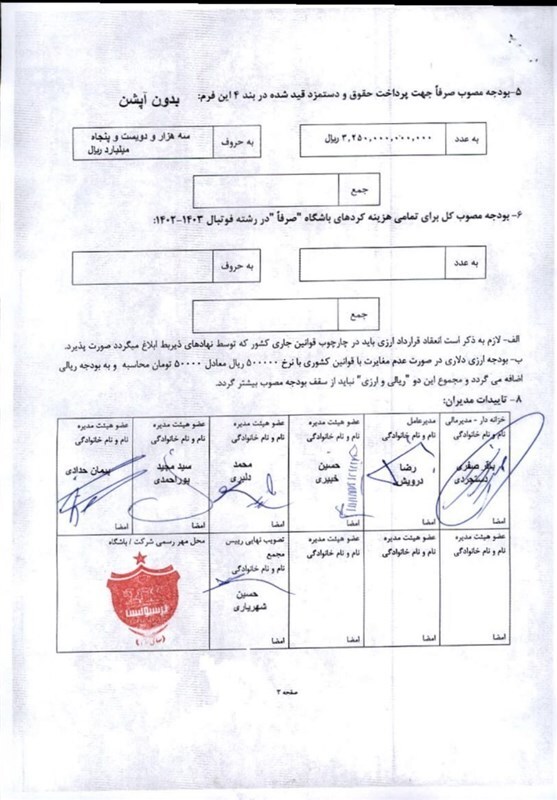 ۵-بودجه مصوب صرفاً جهت پرداخت حقوق و دستمزد قید شده در بند ۴ این فرم: بدون آپشن
به عدد
۳,۲۵۰,۰۰۰,۰۰۰,۰۰۰ ریال
به حروف
سه هزار و دویست و پنجاه
میلیارد ریال
جمع
۶- بودجه مصوب کل برای تمامی هزینه کردهای باشگاه "صرفاً "در رشته فوتبال ۱۴۰۳-۱۴۰۲:
به عدد
به حروف
جمع
الف- لازم به ذکر است انعقاد قرارداد ارزی باید در چارچوب قوانین جاری کشور که توسط نهادهای ذیربط ابلاغ میگردد صورت پذیرد.
ب- بودجه ارزی دلاری در صورت عدم مغایرت با قوانین کشوری با نرخ ۵۰۰۰۰۰ ریال معادل ۵۰۰۰۰ تومان محاسبه و به بودجه ریالی
اضافه می گردد و مجموع این دو "ریالی و ارزی" نباید از سقف بودجه مصوب بیشتر گردد.
۸- تاییدات مدیران:
خزانه دار - مدیرمالی
نام و نام خانوادگی
صفری
دستجردی
امضا
مدیرعامل
نام و نام خانوادگی
رضا
درویش
امضا
عضو هیئت مدیره
نام و نام خانوادگی
حسین
خبیری
امضا
عضو هیئت مدیره
نام و نام خانوادگی
محمد
دلیری
امضا
عضو هیئت مدیره
نام و نام خانوادگی
سید مجید
پوراحمدی
امضا
عضو هیئت مدیره
نام و نام خانوادگی
پیمان حدادی
امضا
عضو هیئت مدیره
نام و نام خانوادگی
امضا
عضو هیئت مدیره
نام و نام خانوادگی
امضا
عضو هیئت مدیره
نام و نام خانوادگی
امضا
تصویب نهایی رییس
مجمع
نام و نام خانوادگی
حسین
شهریاری
امضا
محل مهر رسمی شرکت / باشگاه
پرسپولیس
صفحه ۲